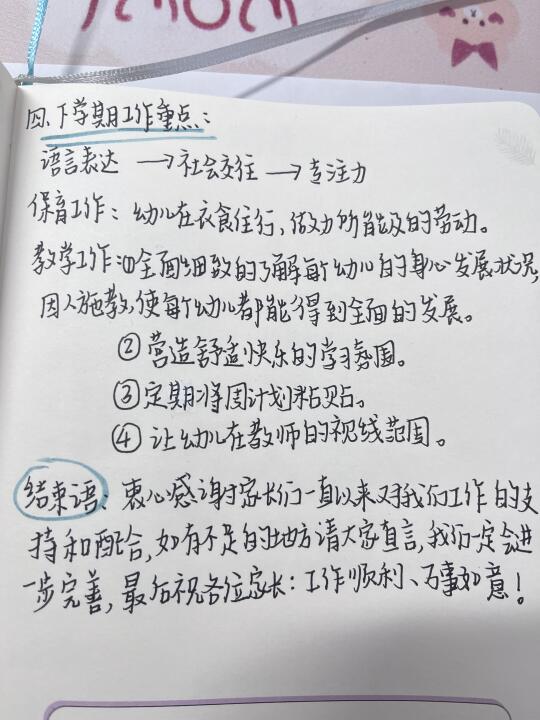 mom
四、下学期工作重点：
语言表达 → 社会交往 → 专注力
保育工作：幼儿在衣食住行，做力所能及的劳动。
教学工作：①全面细致的了解每个幼儿的身心发展状况，
因人施教，使每个幼儿都能得到全面的发展。
②营造舒适快乐的学习氛围。
③定期将周计划粘贴。
④让幼儿在教师的视线范围。
结束语：衷心感谢家长们一直以来对我们工作的支
持和配合，如有不足的地方请大家直言，我们一定会进
一步完善，最后祝各位家长：工作顺利、万事如意！